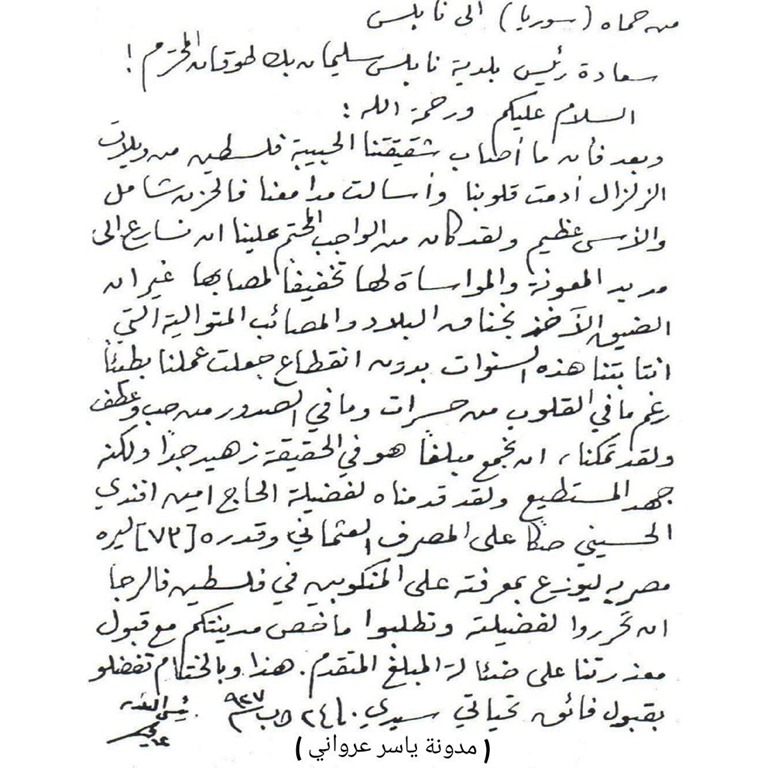 من حماه (سوريا) الى نابلس
سعادة رئيس بلدية نابلس سليمان بك طوقان المحترم !
السلام عليكم ورحمة الله :
وبعد فأن ما أصاب شقيقتنا الحبيبة فلسطين من ويلات
الزلزال أدمت قلوبنا وأسالت مدامعنا فالحزن شامل
والأسى عظيم ولقد كان من الواجب المحتم علينا ان نسارع الى
مد يد المعونة والمواساة لها تخفيفاً لمصابها غير ان
الضيق الآخذ بخناق البلاد والمصائب المتوالية التي
انتابتنا هذه السنوات بدون انقطاع جعلت عملنا بطيئاً
رغم ما في القلوب من حسرات وما في الصدور من حب وعطف
ولقد تمكنا، ان نجمع مبلغاً هو في الحقيقة زهيد جداً ولكنه
جهد المستطيع ولقد قدمناه لفضيلة الحاج امين افندي
الحسيني صكاً على المصرف العثماني وقدره [٧٣] ليره
مصريه ليوزع بمعرفته على المنكوبين في فلسطين فالرجا
ان تحرروا لفضيلته وتطلبوا ما خص مدينتكم مع قبول
معذرتنا على ضئالة المبلغ المتقدم. هذا وبالختام تفضلو
بقبول فائق تحياتي سيدي ٢٤ آب ٩٢٧
( مدونة ياسر عرواني )